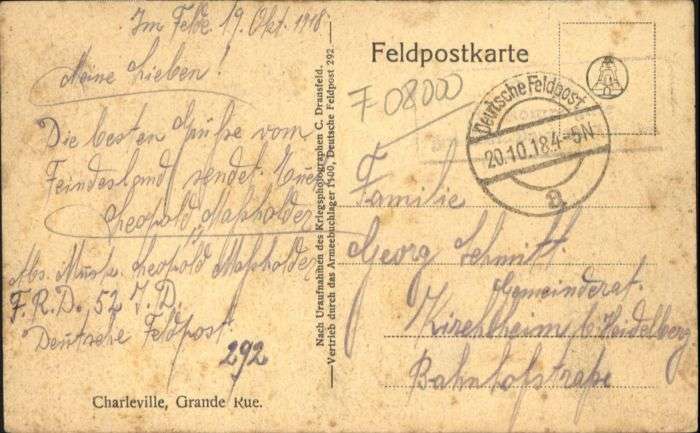 Im Felde 19. Okt. 1918.
Meine Lieben!
Die besten Grüße vom
Feindesland sendet Euer
Leopold
Abs. Musk. Leopold
F.R.D., 52 J.D.
Deutsche Feldpost
292
Charleville, Grande Rue.
Nach Uraufnahmen des Kriegsphotographen C. Dransfeld.
Vertrieb durch das Armeebuchlager 1400, Deutsche Feldpost 292.
Feldpostkarte
F 08000
Deutsche Feldpost
20.10.18 4-5N
a
Familie
Georg Schmitt
Gemeinderat.
Kirchheim b. Heidelberg
Bahnhofstraße